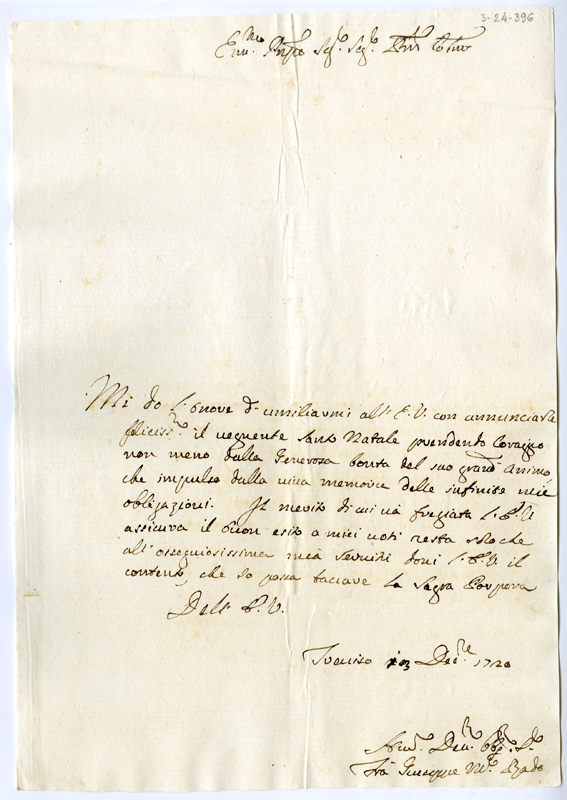 3-24-396
Em.mo Sig.r Sig.r
Mi do l'onore d'umiliarmi all'E.V. con annunciarle
feliciss.mo il vegnente Santo Natale prendendo Coraggio
non meno dalla Generosa bontà del suo grand'Animo,
che impulso dalla viva memoria delle infinite mie
obligazioni. Il merito di cui và fregiata l'E.V.
assicura il buon esito a miei voti resta solo che
all'osseguiosissima mea servitù doni l'E.V. il
contento, che Io possa baciare la Sagra Porpora
Dell'E.V.
Treviso Dec.re 1720
Hum. Dev. Obb.
Frà Giuseppe M.